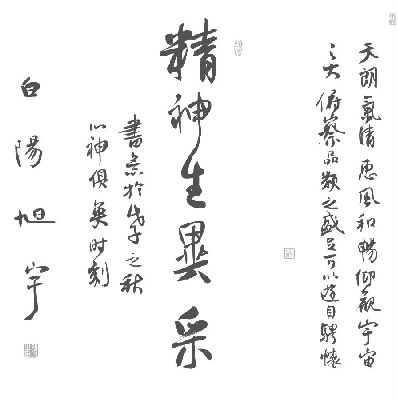 天朗氣清惠風和暢仰觀宇宙
之大俯察品類之盛足可以遊目騁懷
精神生異采
書於戊子之秋
心神俱爽时刻
白陽旭宇